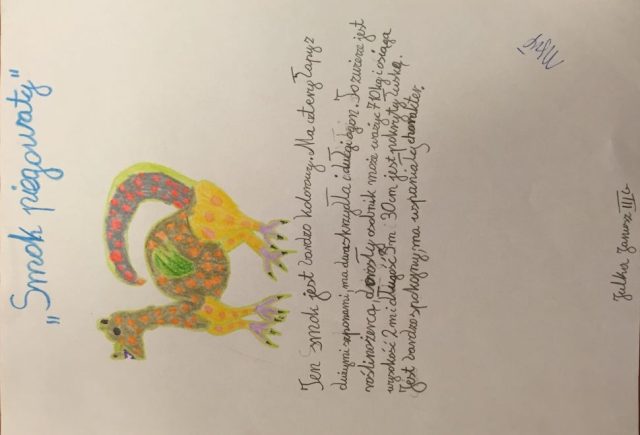 „Smok piegowaty”
Ten smok jest bardzo kolorowy. Ma cztery łapy z
dużymi szponami, ma dwa skrzydła i długi ogon. To zwierzę jest
roślinożercą dorosły osobnik może ważyć 710kg i osiąga
wysokość 2m i długość 3m 30cm jest pokryty łuską.
Jest bardzo spokojny, ma wspaniały charakter.
Julka Janusz III c